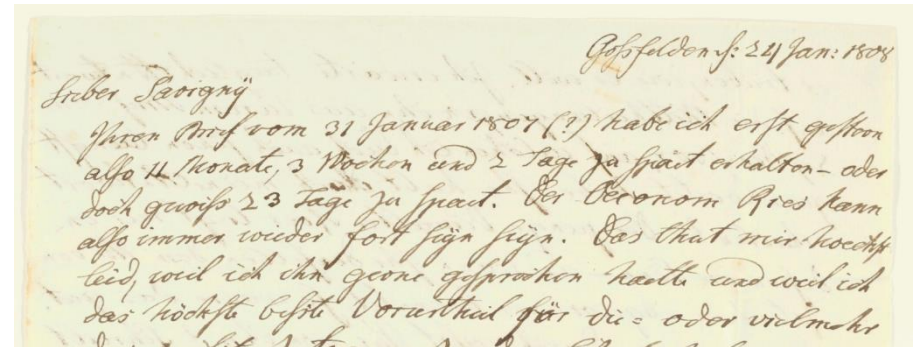 Goßfelden d: 24 Jan: 1808
Lieber Savigny
Ihren Brief vom 31 Januar 1807 (?) habe ich erst gestern
also 11 Monate, 3 Wochen und 2 Tage zu spaet erhalten – oder
doch gewiss 23 Tage zu spaet. Der Oeconom Ries kann
also immer wieder fort seyn seyn. Das thut mir hoechst
leid, weil ich ihn gerne gesprochen haette und weil ich
das höchste beste Vorurtheil für die = oder vielmehr